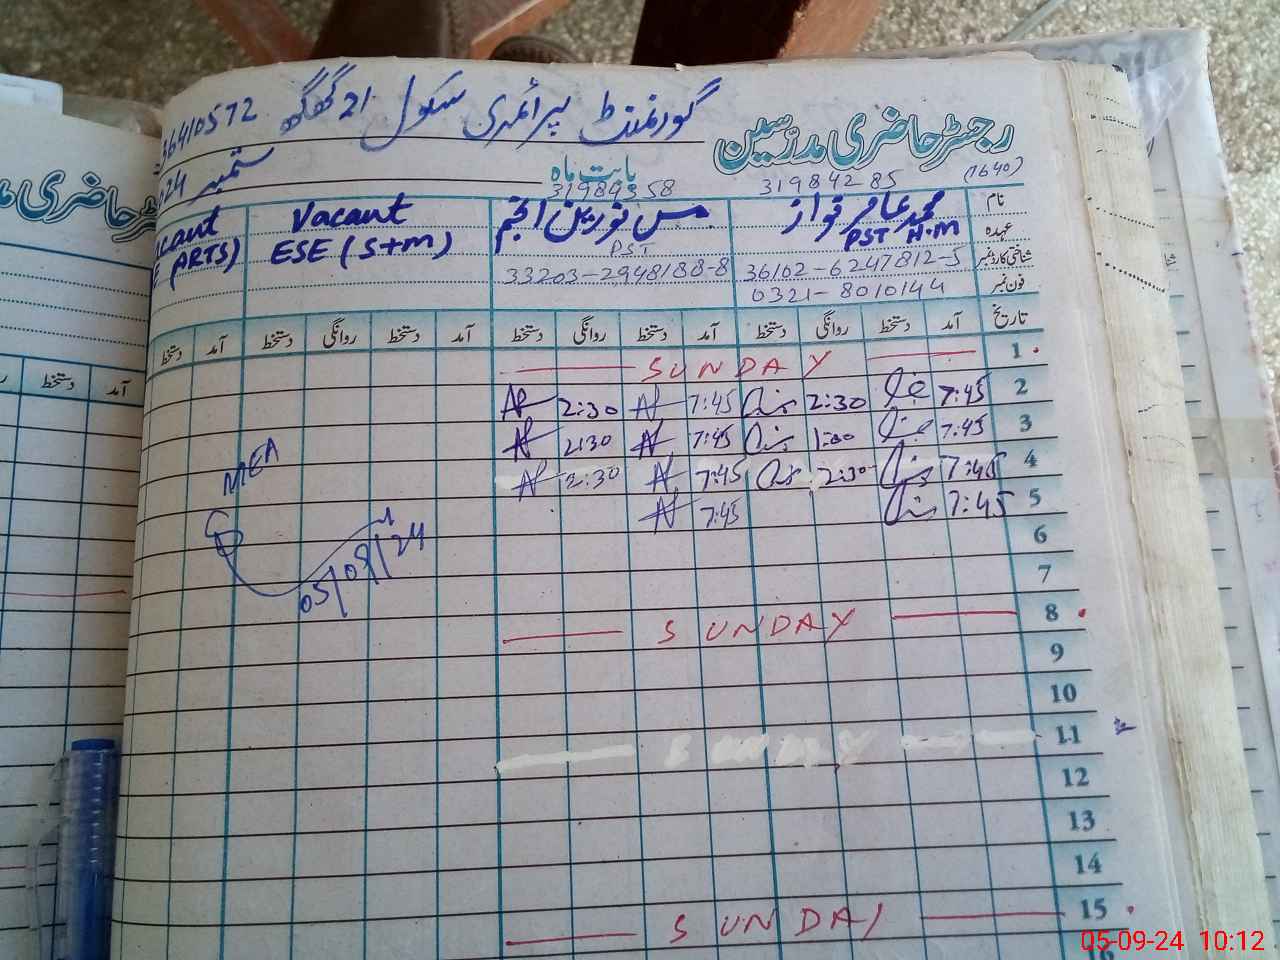 گورنمنٹ پرائمری سکول 21 گھگھ 36410572
رجسٹر حاضری مدرسین
بابت ماہ ستمبر
(1640)
31984285
نام محمد عامر نواز مس نورین انجم Vacant
عہدہ PST H.M PST ESE (S+M) (ARTS)
شناختی کارڈ نمبر 36102-6247812-5 33203-2948188-8
فون نمبر 0321-8010144
تاریخ آمد دستخط روانگی دستخط آمد دستخط روانگی دستخط آمد دستخط روانگی دستخط آمد دستخط
1 SUNDAY
2 7:45 2:30 7:45 2:30
3 7:45 1:00 7:45 2:30
4 7:45 2:30 7:45 2:30
5 7:45 7:45
MEA
05/09/24
6
7
8 SUNDAY
9
10
11 SUNDAY
12
13
14
15 SUNDAY
16
آمد دستخط
05-09-24 10:12